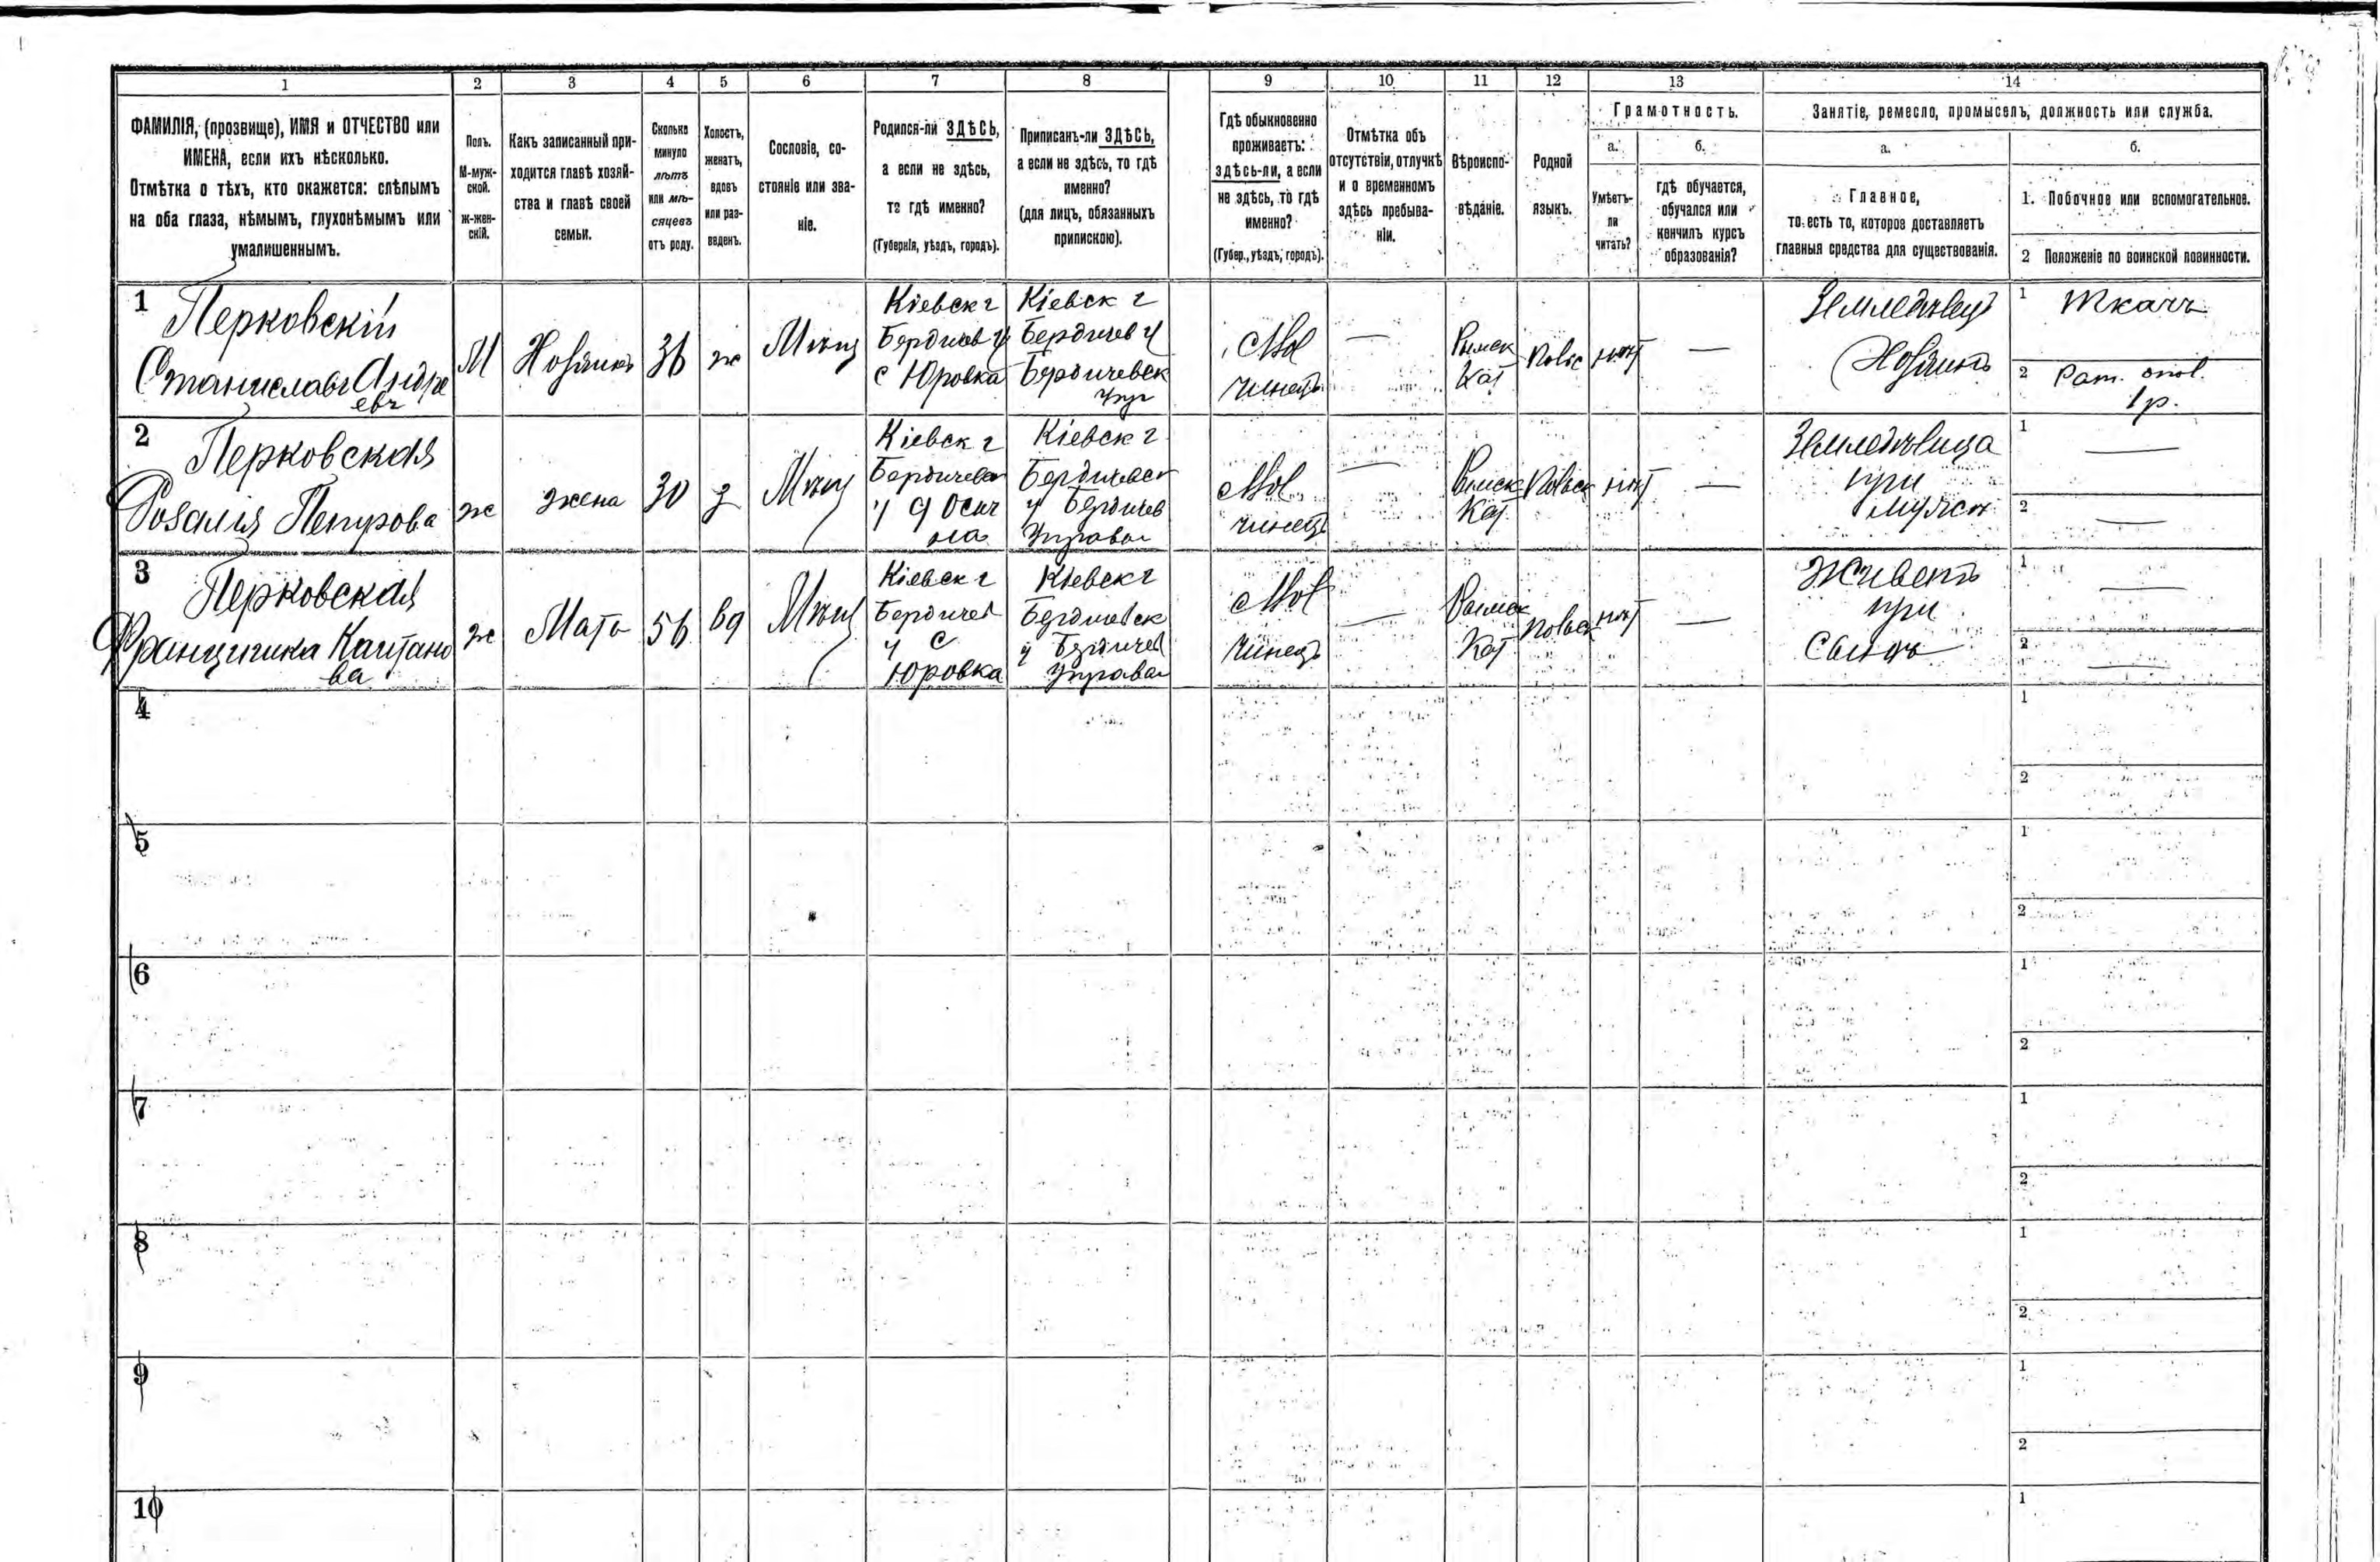 1 2 3 4 5 6 7 8 9 10 11 12 13 14
ФАМИЛІЯ, (прозвище), ИМЯ и ОТЧЕСТВО или
ИМЕНА, если ихъ нѣсколько.
Отмѣтка о тѣхъ, кто окажется: слѣпымъ
на оба глаза, нѣмымъ, глухонѣмымъ или
умалишеннымъ.
Полъ.
М-муж-
ской.
ж-жен-
скій.
Какъ записанный при-
ходится главѣ хозяй-
ства и главѣ своей
семьи.
Сколько
минуло
лѣтъ
или мѣ-
сяцевъ
отъ роду.
Холостъ,
женатъ,
вдовъ
или раз-
веденъ.
Сословіе, со-
стояніе или зва-
ніе.
Родился-ли ЗДѢСЬ,
а если не здѣсь,
то гдѣ именно?
(Губернія, уѣздъ, городъ).
Приписанъ-ли ЗДѢСЬ,
а если не здѣсь, то гдѣ
именно?
(для лицъ, обязанныхъ
припискою).
Гдѣ обыкновенно
проживаетъ:
здѣсь-ли, а если
не здѣсь, то гдѣ
именно?
(Губер., уѣздъ, городъ).
Отмѣтка объ
отсутствіи, отлучкѣ
и о временномъ
здѣсь пребыва-
ніи.
Вѣроиспо-
вѣданіе.
Родной
языкъ.
Грамотность.
а.
Умѣетъ-
ли
читать?
б.
гдѣ обучается,
обучался или
кончилъ курсъ
образованія?
Занятіе, ремесло, промыселъ, должность или служба.
а.
Главное,
то есть то, которое доставляетъ
главныя средства для существованія.
б.
1. Побочное или вспомогательное.
2 Положеніе по воинской повинности.
1
Перковскій
Станиславъ Андре
евъ
М
Хозяинъ
36
ж
Мѣщ
Кіевск г
Бердичев у
с Юровка
Кіевск г
Бердичев у
Бердичевск
Упр
Мол
чинецъ
—
Римск
Кат
Polsc
нѣт
—
Земледѣлецъ
Хозяинъ
1 Ткачъ
2 Рат. опол.
1 р.
2
Перковская
Розалія Петрова
ж
жена
30
з
Мѣщ
Кіевск г
Бердичевск
у д Осич
на
Кіевск г
Бердичевск
у Бердичев
Управа
Мол
чинецъ
—
Римск
Кат
Польск
нѣт
—
Земледѣлица
при
мужѣ
1 —
2 —
3
Перковская
Францишка Каитано
ва
ж
Мать
56
вд
Мѣщ
Кіевск г
Бердичев
у с
Юровка
Кіевск г
Бердичевск
у Бердичев
Управа
Мол
чинецъ
—
Римск
Кат
Польск
нѣт
—
Живетъ
при
сынѣ
1 —
2 —
4
1
2
5
1
2
6
1
2
7
1
2
8
1
2
9
1
2
10
1